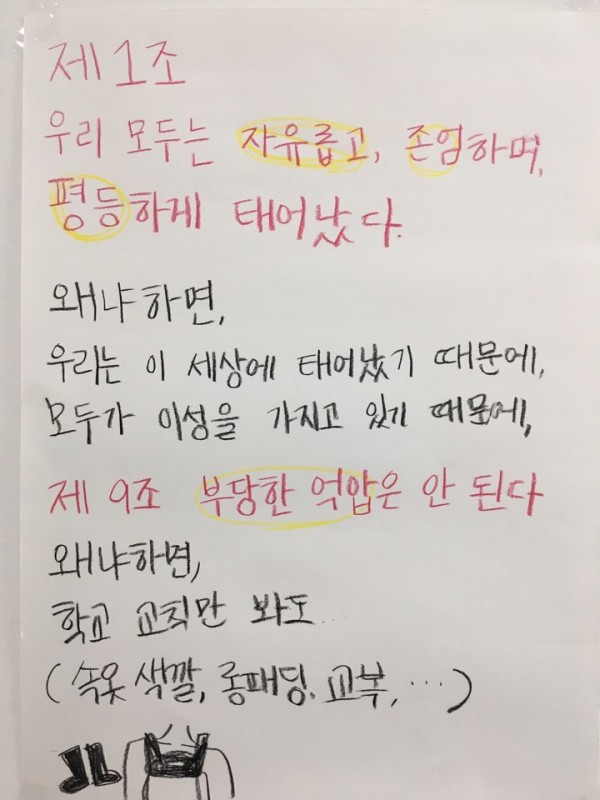 제 1조
우리 모두는 자유롭고, 존엄하며,
평등하게 태어났다.
왜냐하면,
우리는 이 세상에 태어났기 때문에,
모두가 이성을 가지고 있기 때문에,
제 9조 부당한 억압은 안 된다
왜냐하면,
학교 교칙만 봐도...
(속옷 색깔, 롱패딩, 교복, ...)